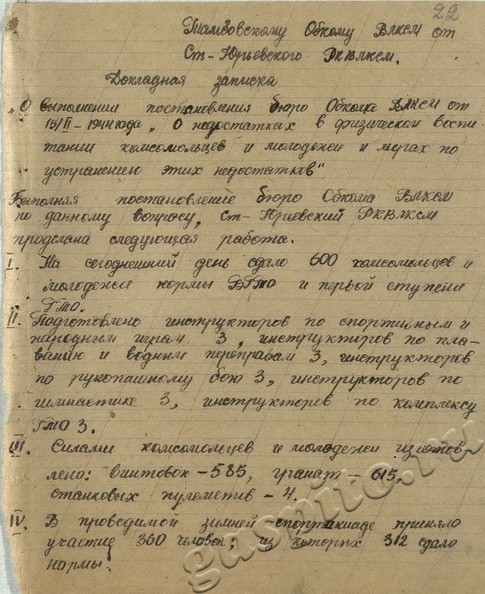 22
Тамбовскому Обкому ВЛКСМ от
Ст-Юрьевского РКВЛКСМ.
Докладная записка
„О выполнении постановления бюро Обкома ВЛКСМ от
15/II-1944 года „О недостатках в физическом воспи-
тании комсомольцев и молодежи и мерах по
устранению этих недостатков"
Выполняя постановление бюро Обкома ВЛКСМ
по данному вопросу, Ст-Юрьевский РКВЛКСМ
проделана следующая работа.
I. На сегоднешний день сдало 600 комсомольцев и
молодежи нормы БГТО и первой ступени
ГТО.
II. Подготовлено инструкторов по спортивным и
народным играм 3, инструкторов по пла-
ванию и водным переправам 3, инструкторов
по рукопашному бою 3, инструкторов по
гимнастике 3, инструкторов по комплексу
ГТО 3.
III. Силами комсомольцев и молодежи изготов-
лено: винтовок - 585, гранат - 615,
станковых пулеметив - 4.
IV. В проводимой зимней спортакиаде приняло
участие 350 человек; из которых 312 сдало
нормы.
gaspito.ru